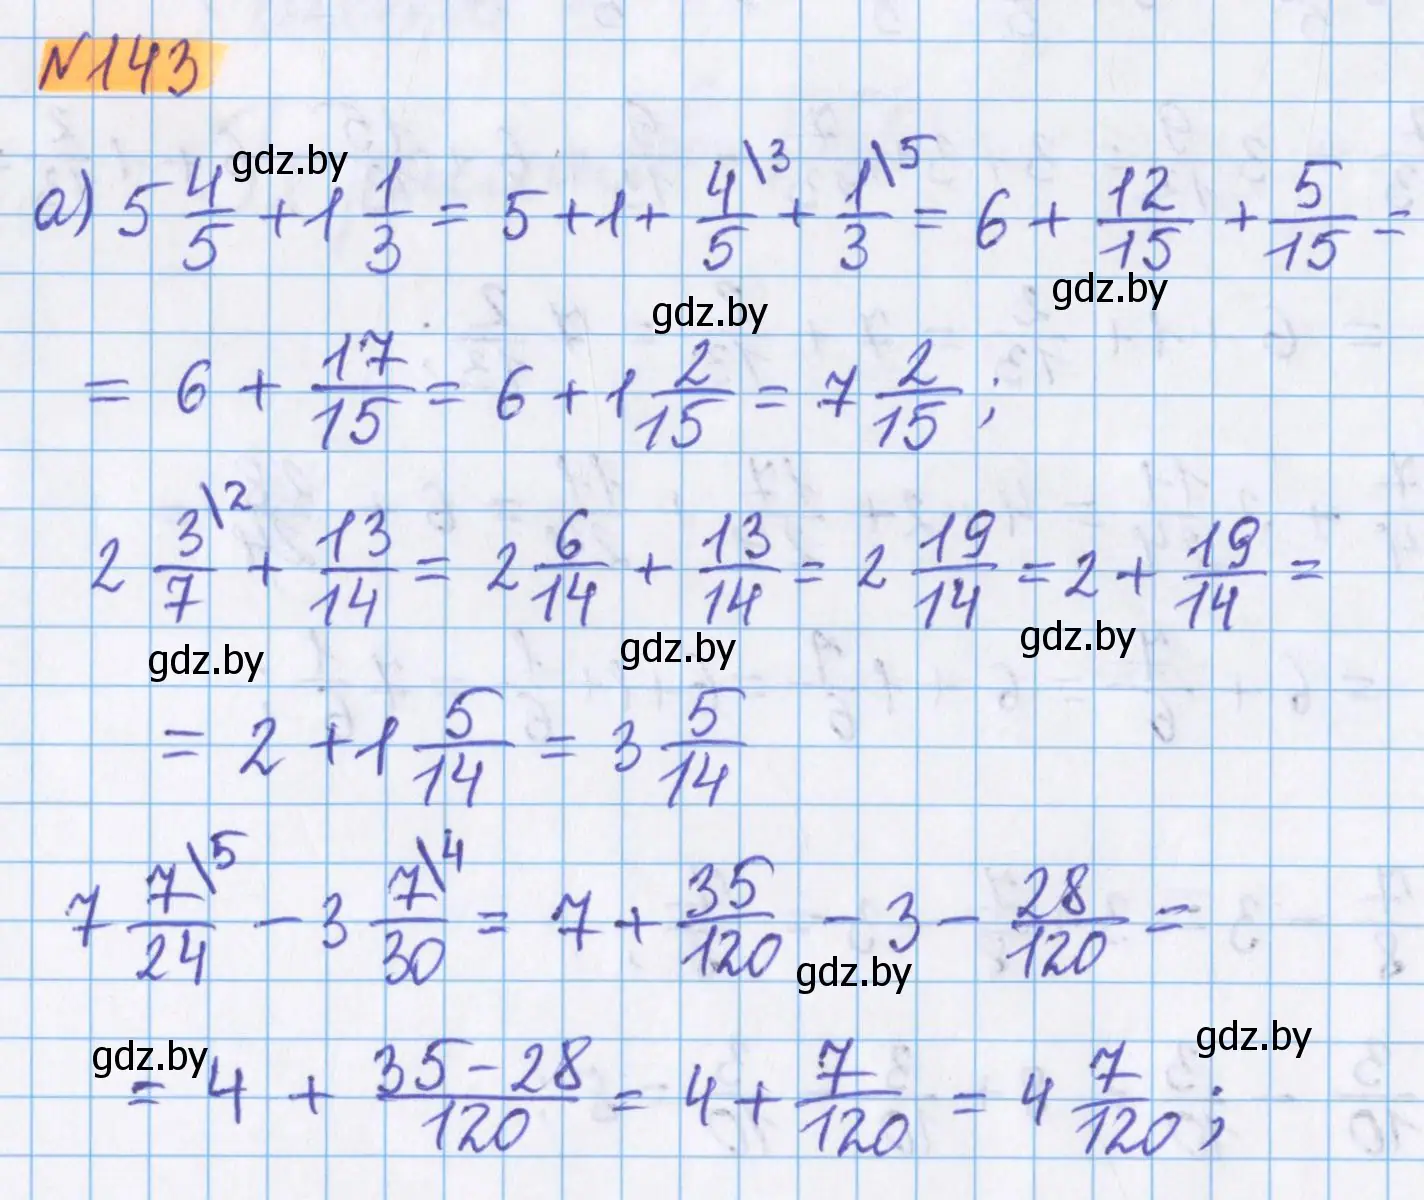 №143
gdz.by
а) 5 4/5 + 1 1/3 = 5 + 1 + 4/5 \3 + 1/3 \5 = 6 + 12/15 + 5/15 =
gdz.by
gdz.by
= 6 + 17/15 = 6 + 1 2/15 = 7 2/15 ;
2 3/7 \2 + 13/14 = 2 6/14 + 13/14 = 2 19/14 = 2 + 19/14 =
gdz.by
gdz.by
gdz.by
= 2 + 1 5/14 = 3 5/14
7 7/24 \5 - 3 7/30 \4 = 7 + 35/120 - 3 - 28/120 =
gdz.by
gdz.by
gdz.by
= 4 + 35-28/120 = 4 + 7/120 = 4 7/120 ;